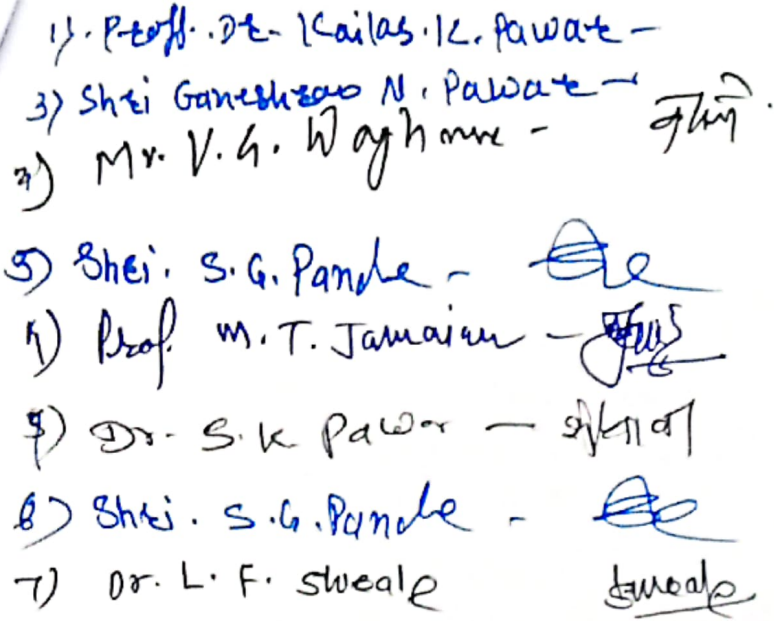 1). Proff. Dr. Kailas. K. Pawar -
3) Shri Ganeshrao N. Pawar -
3) Mr. V. G. Waghmare -
5) Shri. S. G. Pande -
4) Prof. M. T. Jamaian -
5) Dr. S. K Pawar -
6) Shri. S. G. Pande -
7) Dr. L. F. Shweale